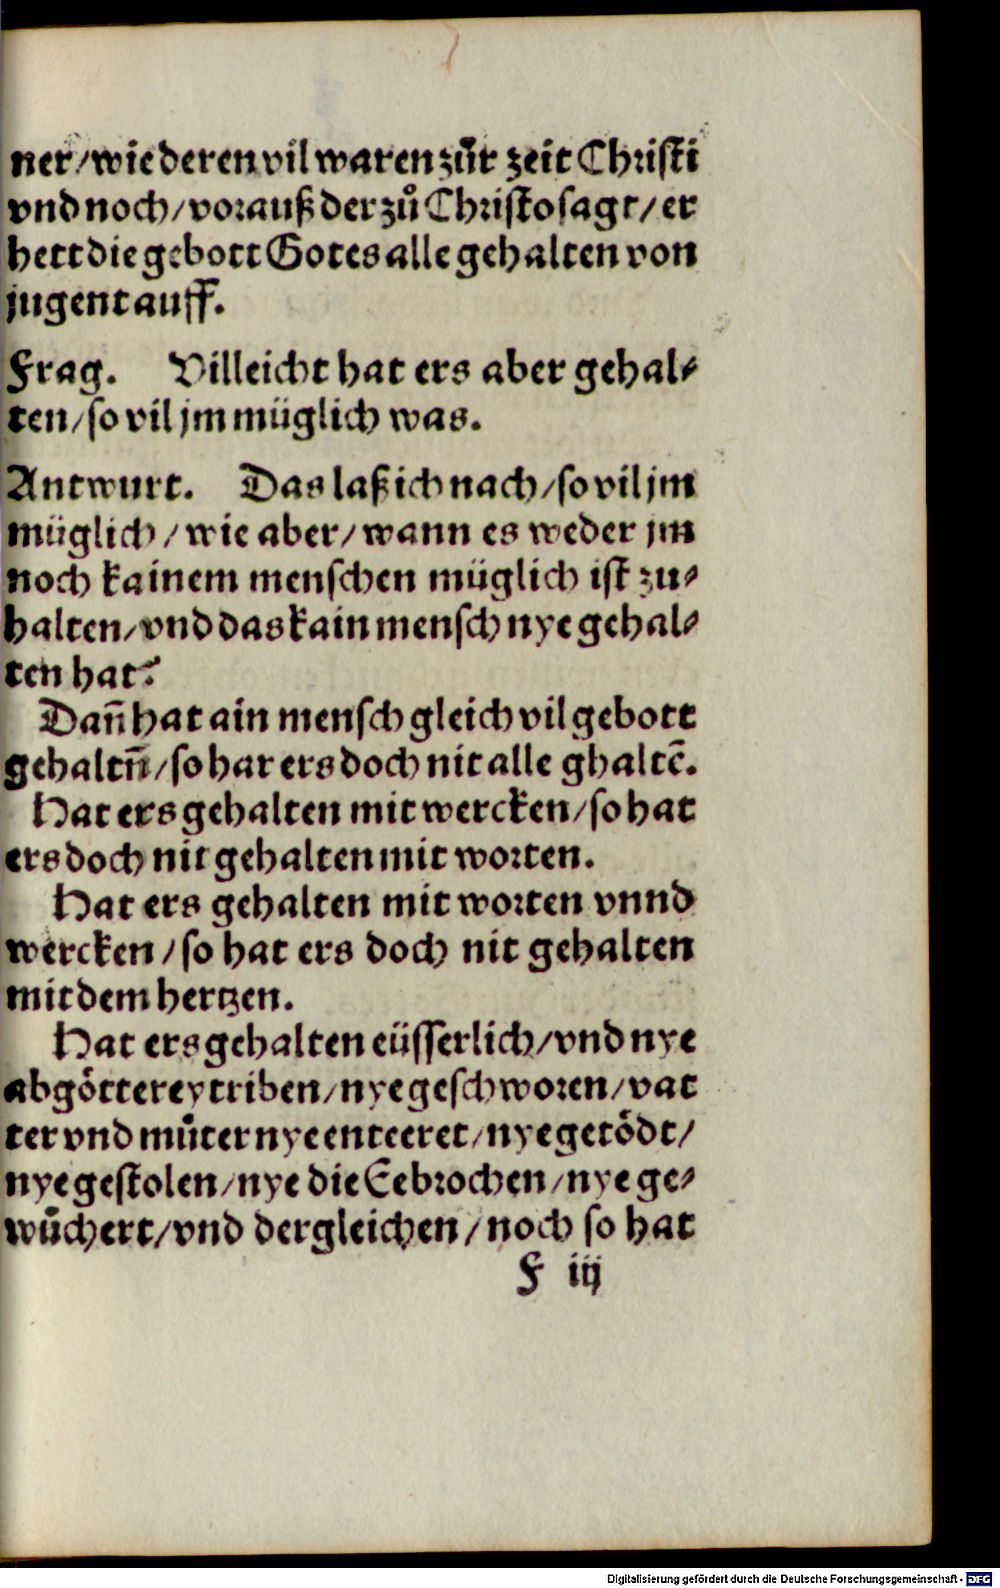 ner/wie deren vil waren zůr zeit Christi
vnd noch/vorauß der zů Christo sagt/er
hett die gebott Gotes alle gehalten von
jugent auff.
Frag. Villeicht hat ers aber gehal⸗
ten/so vil jm müglich was.
Antwurt. Das laß ich nach/so vil jm
müglich/wie aber/wann es weder jm
noch kainem menschen müglich ist zu⸗
halten/vnd das kain mensch nye gehal⸗
ten hat?
Dañ hat ain mensch gleich vil gebott
gehaltñ/so hat ers doch nit alle ghaltē.
Hat ers gehalten mit wercken/so hat
ers doch nit gehalten mit worten.
Hat ers gehalten mit worten vnnd
wercken/so hat ers doch nit gehalten
mit dem hertzen.
Hat ers gehalten eüsserlich/vnd nye
abgötterey triben/nye geschworen/vat
ter vnd můter nye enteeret/nye getödt/
nye gestolen/nye die Eebrochen/nye ge⸗
wůchert/vnd dergleichen/noch so hat
F iij
Digitalisierung gefördert durch die Deutsche Forschungsgemeinschaft - DFG